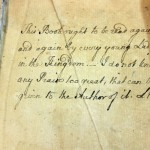 This Book ought to be read again
and again by every young Lady
in the Kingdom — I do not know
any Praise too great, that can be
given to the Author of it.